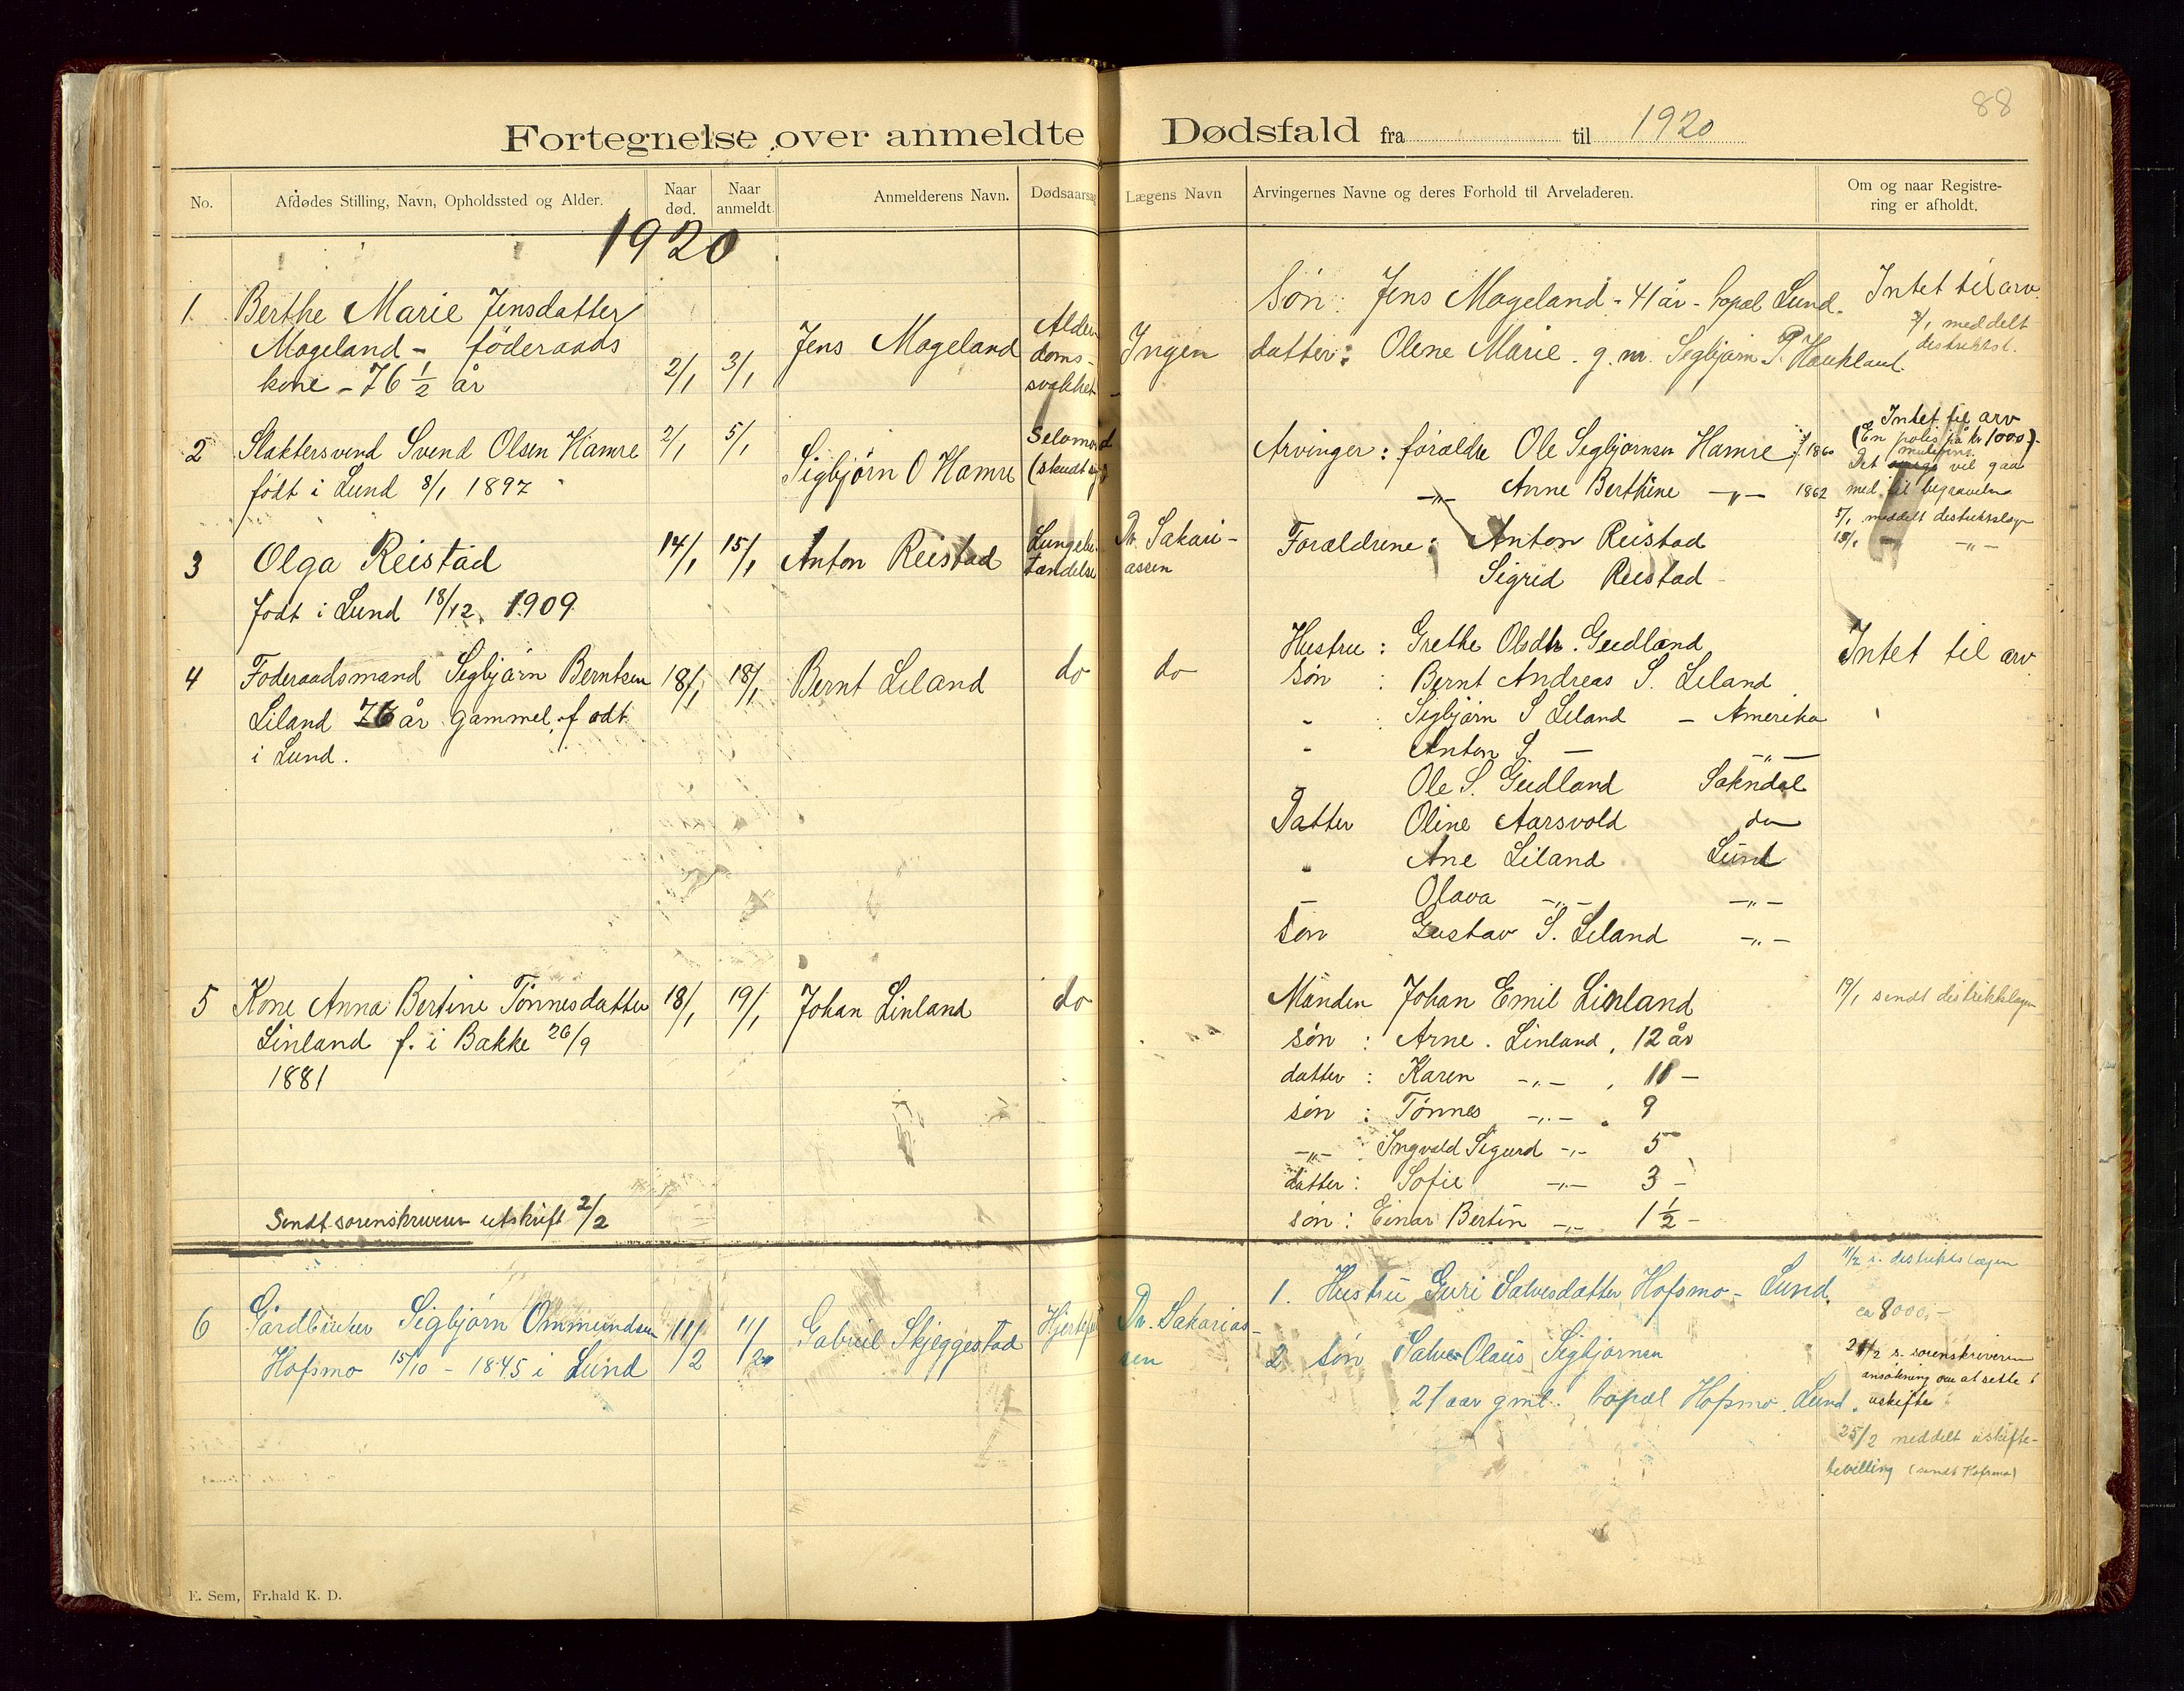 88
Fortegnelse over anmeldte Dødsfald fra til 1920
No.
Afdødes Stilling, Navn, Opholdssted og Alder.
Naar død.
Naar anmeldt.
Anmelderens Navn.
Dødsaarsag
Lægens Navn
Arvingernes Navne og deres Forhold til Arveladeren.
Om og naar Registrering er afholdt.
1920
1
Berthe Marie Jensdatter
Mogeland - föderaads
kone - 76 1/2 år
2/1
3/1
Jens Mogeland
Alder
doms-
svakhet
Ingen
Søn: Jens Mogeland - 41 år - bopæl Lund.
datter: Olene Marie . g. m. Segbjørn P. Haukland.
Intet til arv.
3/1 meddelt
distriktsl.
2
Slaktersvend Svend Olsen Hamre
født i Lund 8/1 1897
2/1
5/1
Sigbjörn O Hamre
Selvmord
(skudt sig)
Arvinger: forældre Ole Segbjørnsen Hamre f. 1860
-„- Anne Berthine -„- 1862
Intet til arv
(En polis på kr 1000)
muligens
Det vil gaa
med til begravelse
5/1 meddelt distriktslæge
3
Olga Reistad
Født i Lund 18/12. 1909
14/1
15/1
Anton Reistad
Lungebe-
tændelse
Dr. Sakari-
assen
Forældrene: Anton Reistad
Sigrid Reistad
15/1 -„- -„-
4
Föderaadsmand Segbjørn Berntsen
Liland 76 år gammel, født
i Lund.
18/1
18/1
Bernt Liland
do
do
Hustru : Grethe Olsdtr. Gudland
Søn : Bernt Andreas S. Liland
- Sigbjørn S Liland - Amerika
- Anton S. - -„-
- Ole S. Gudland Sokndal
Datter Oline Aarsvold do
„ Ane Liland Lund
- Olava -„- -„-
Søn Gustav S. Liland -„-
Intet til arv
5
Kone Anna Bertine Tönnesdatter
Linland f. i Bakke 26/9
1881
18/1
19/1
Johan Linland
do
Manden Johan Emil Linland
søn : Arne . Linland , 12 år
datter : Karen -„- , 11 -
søn : Tönnes -„- . 9
-„- : Ingvald Sigurd -„- 5
datter : Sofie -„- 3 -
søn : Einar Bertin -„- 1 1/2 -
19/1 sendt distriktslægen
Sendt sorenskriveren utskrift 2/2
6
Gårdbruker Sigbjørn Ommundsen
Hofsmo 15/10 - 1845 i Lund
11/2
11/2
Gabriel Skjeggestad
Dr. Sakarias-
sen
1. Hustru Guri Salvesdatter Hofsmo - Lund.
2 søn Salve Olaus Sigbjørnsen
21 aar gml. bopæl Hofsmo. Lund.
11/2 s. distriktslægen
ca 8000,-
21/2 s. sorenskriveren
ansökning om at sitte i
uskifte
25/2 meddelt uskifte-
bevilling (sendt Hofsmo)
E. Sem, Fr.hald K. D.